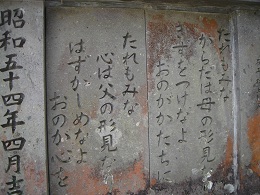 たれもみな
からだは母の形見
きずをつけなよ
おのがかたちに
たれもみな
心は父の形見な
はずかしめなよ
おのが心を
昭和五十四年四月吉